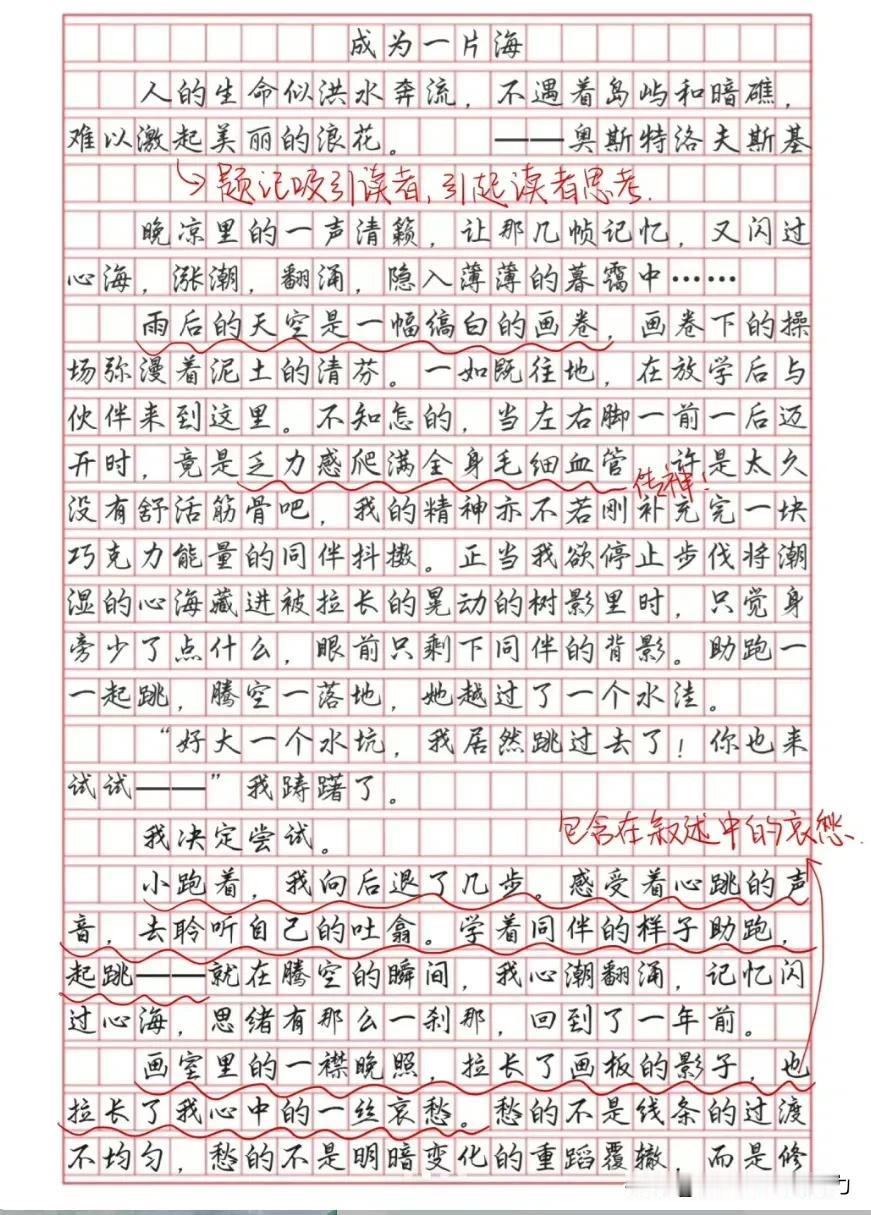 成为一片海
人的生命似洪水奔流，不遇着岛屿和暗礁，
难以激起美丽的浪花。 ——奥斯特洛夫斯基
题记吸引读者，引起读者思考.
晚凉里的一声清籁，让那几帧记忆，又闪过
心海，涨潮，翻涌，隐入薄薄的暮霭中……
雨后的天空是一幅缟白的画卷，画卷下的操
场弥漫着泥土的清芬。一如既往地，在放学后与
伙伴来到这里。不知怎的，当左右脚一前一后迈
开时，竟是乏力感爬满全身毛细血管 许是太久
传神！
没有舒活筋骨吧，我的精神亦不若刚补充完一块
巧克力能量的同伴抖擞。正当我欲停止步伐将潮
湿的心海藏进被拉长的晃动的树影里时，只觉身
旁少了点什么，眼前只剩下同伴的背影。助跑一
一起跳，腾空一落地，她越过了一个水洼。
“好大一个水坑，我居然跳过去了！你也来
试试——”我踌躇了。
我决定尝试。
包含在叙述中的哀愁.
小跑着，我向后退了几步。感受着心跳的声
音，去聆听自己的吐翕。学着同伴的样子助跑，
起跳——就在腾空的瞬间，我心潮翻涌，记忆闪
过心海，思绪有那么一刹那，回到了一年前。
画室里的一襟晚照，拉长了画板的影子，也
拉长了我心中的一丝哀愁。愁的不是线条的过渡
不均匀，愁的不是明暗变化的重蹈覆辙，而是修